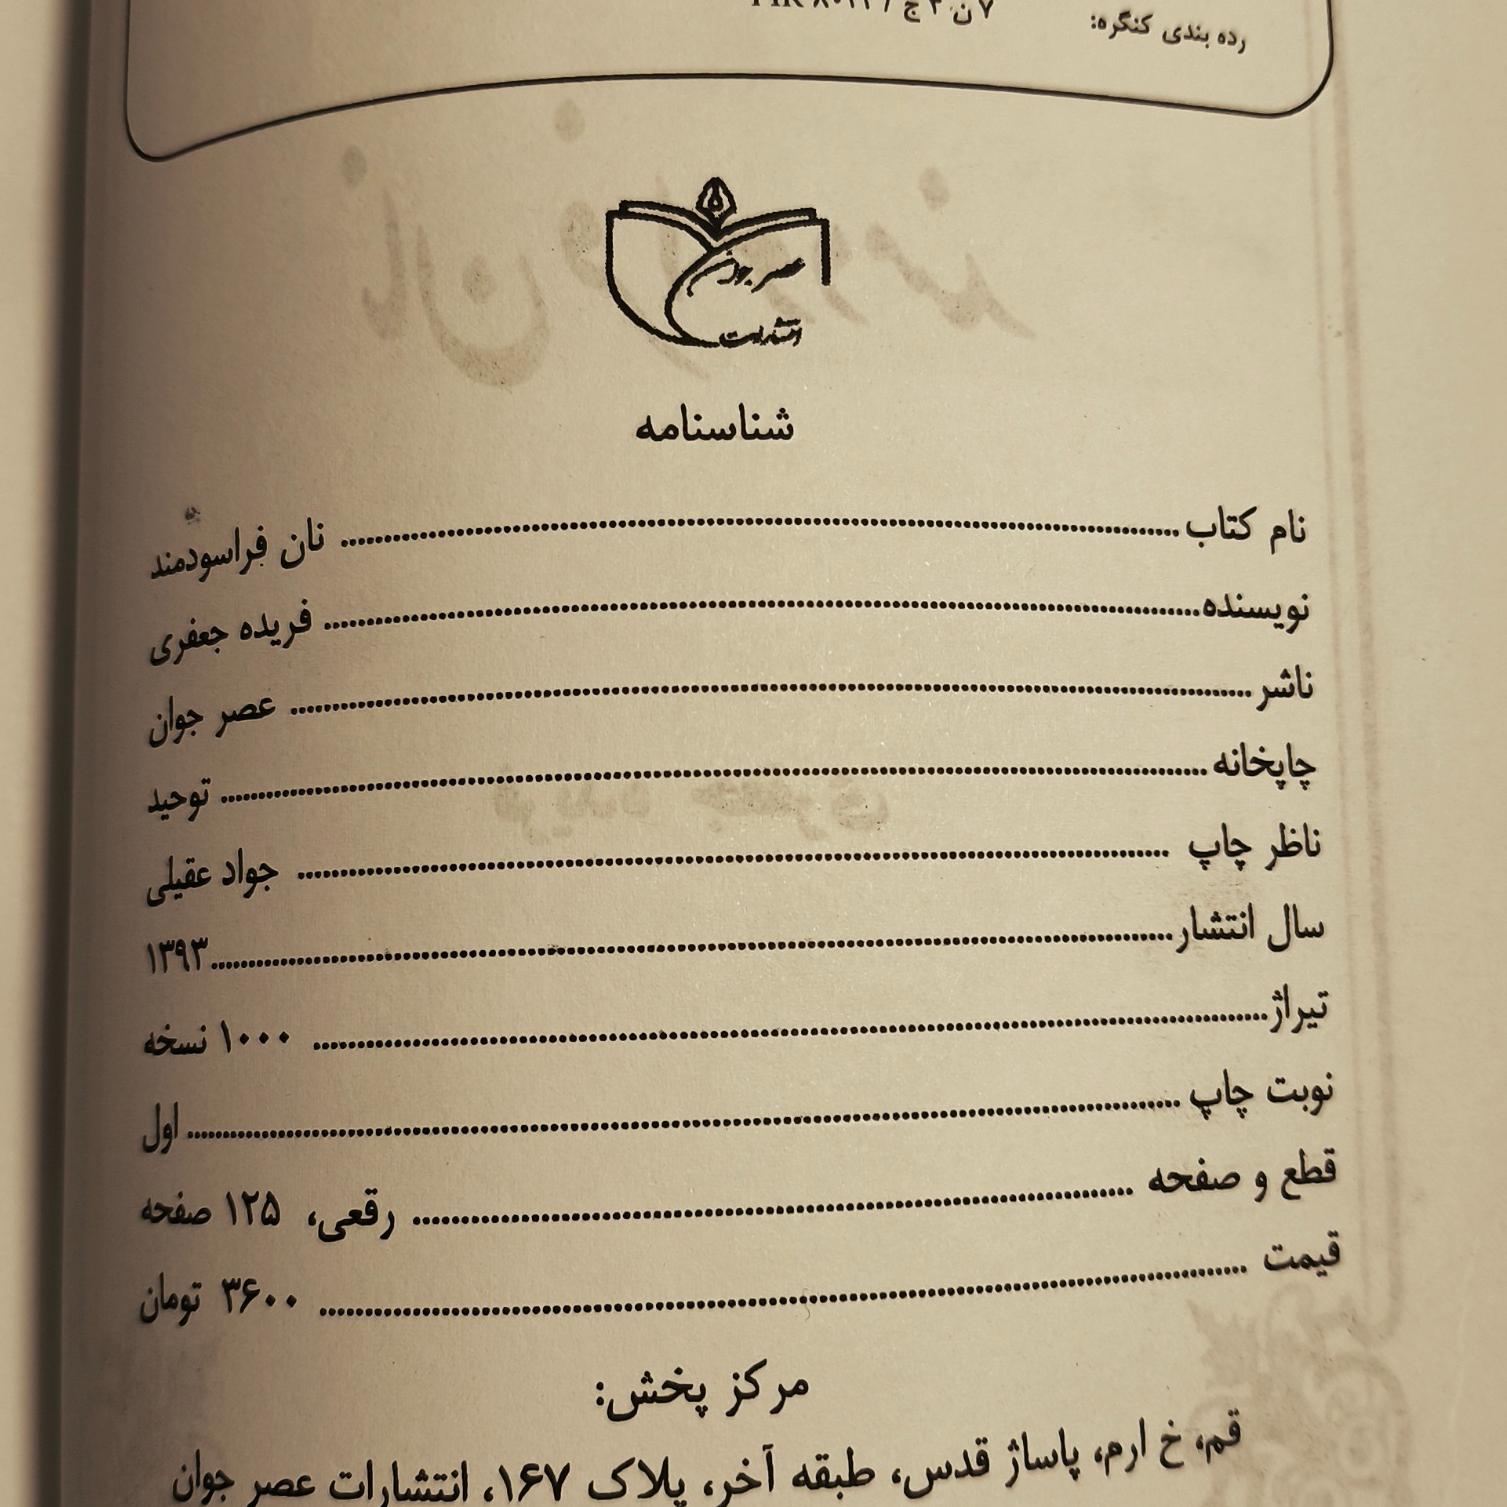 رده بندی کنگره:
عصر جوان
انتشارات
شناسنامه
نام کتاب........................ نان فراسودمند
نویسنده........................ فریده جعفری
ناشر........................ عصر جوان
چاپخانه........................ توحید
ناظر چاپ ........................ جواد عقیلی
سال انتشار........................۱۳۹۳
تیراژ........................ ۱۰۰۰ نسخه
نوبت چاپ ........................ اول
قطع و صفحه ........................ رقعی، ۱۲۵ صفحه
قیمت ........................ ۳۶۰۰ تومان
مرکز پخش:
قم، خ ارم، پاساژ قدس، طبقه آخر، پلاک ۱۶۷، انتشارات عصر جوان